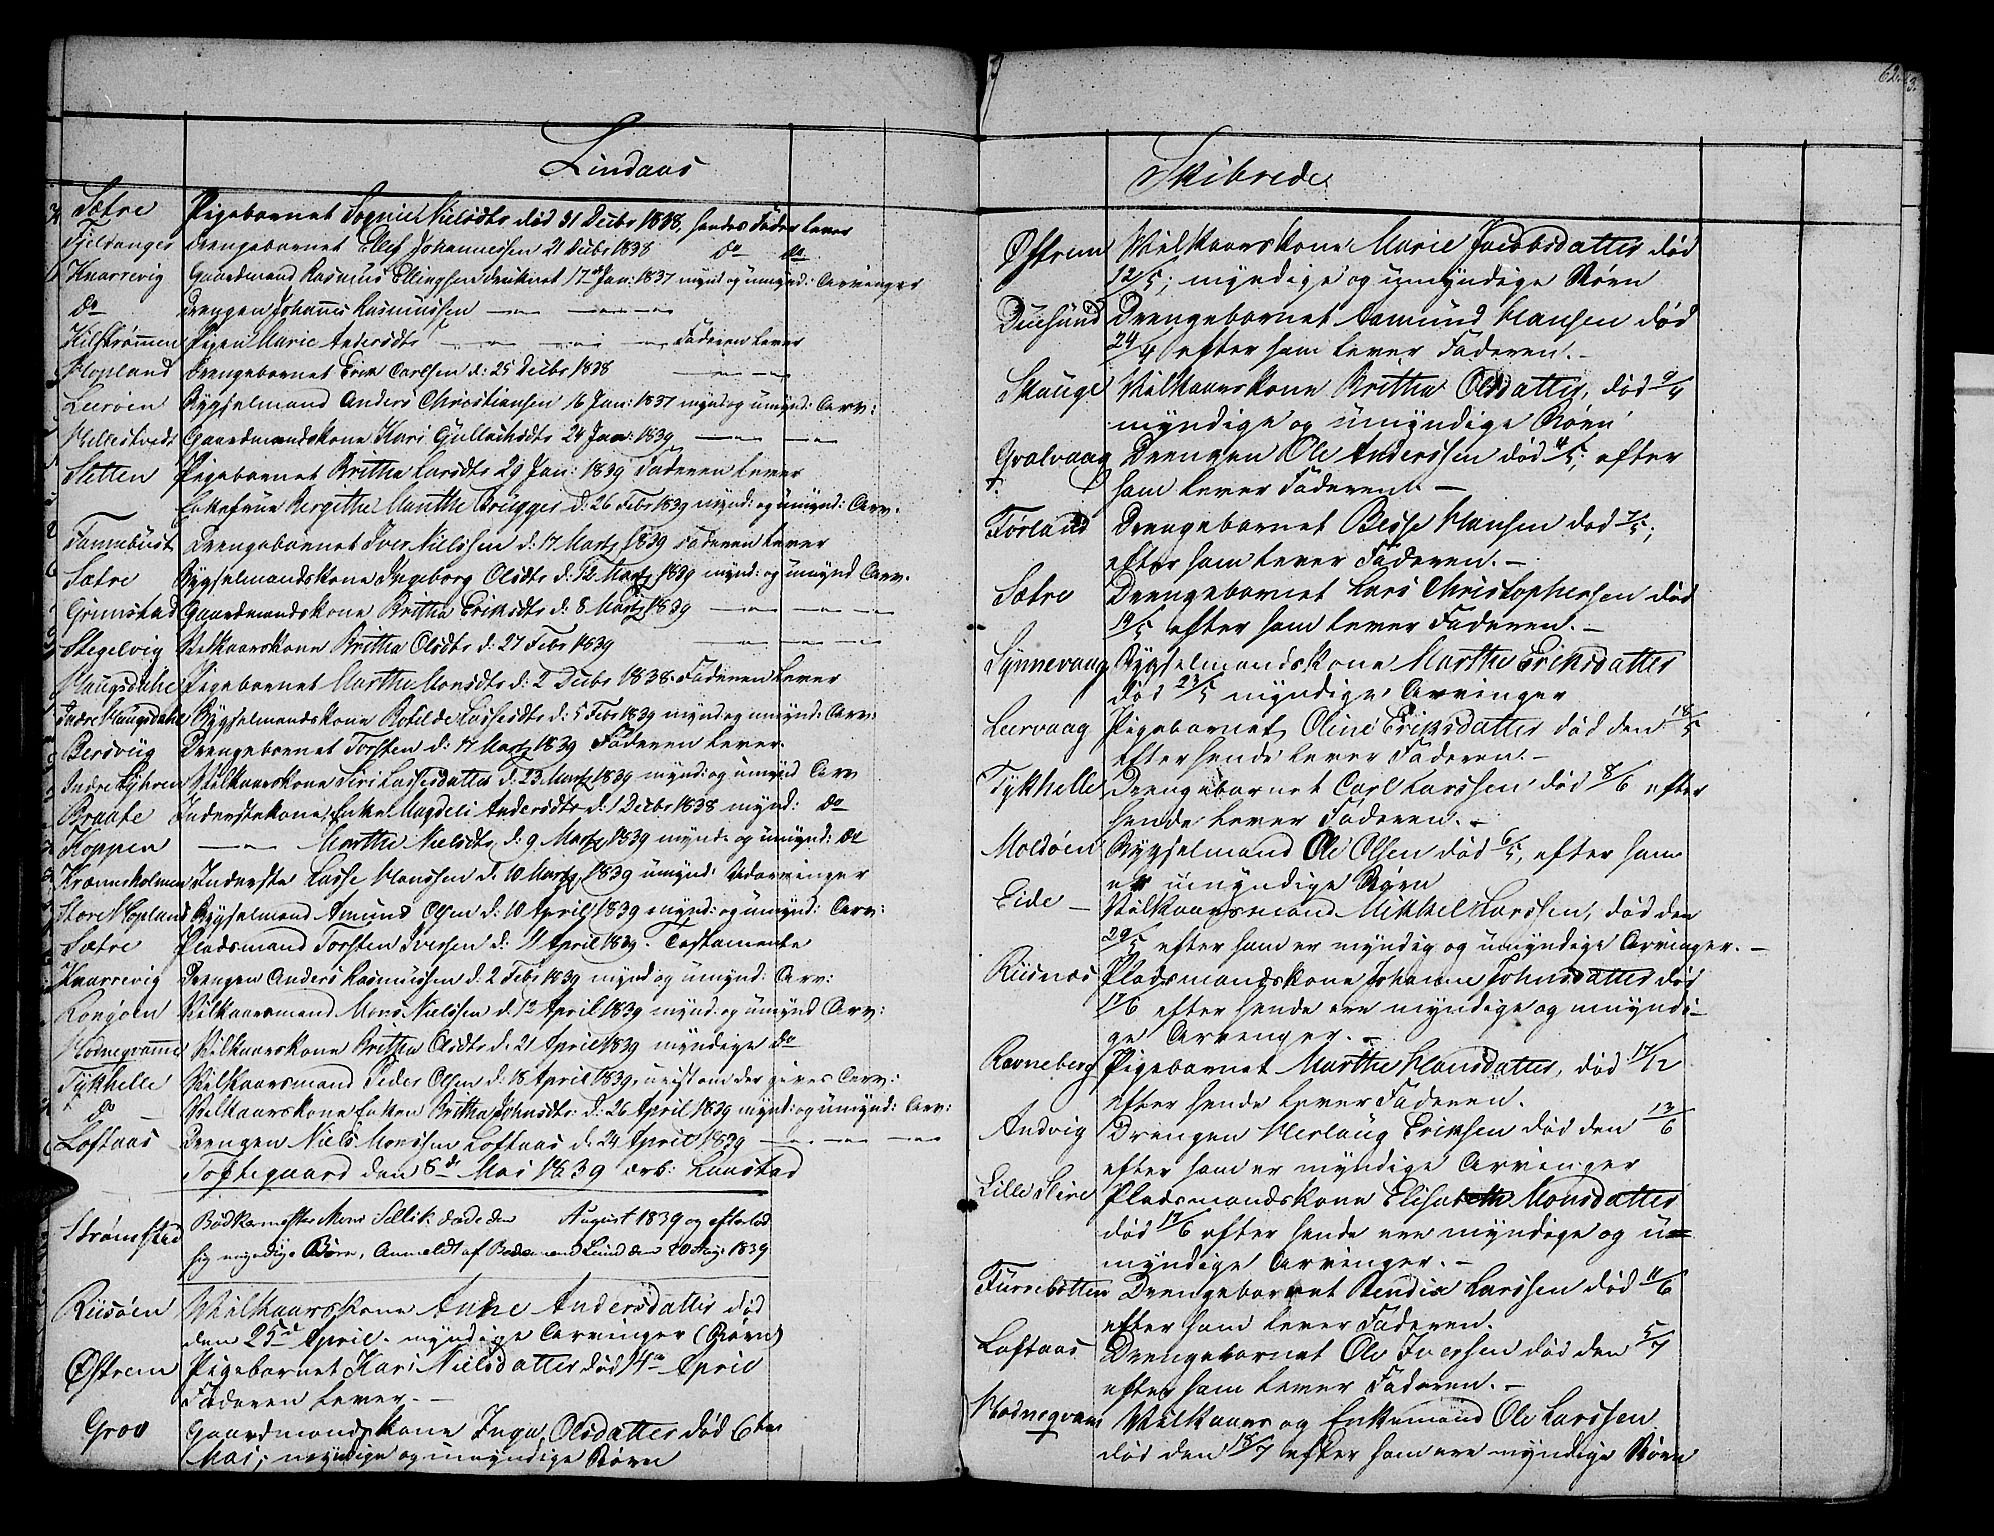 Lindaas
Sætre Pigebarnet Sogni Nielsdtr død 31 Decbr 1838, hendes Fader lever
Fjeldanger Drengebarnet Elief Johannessen 21 Decbr 1838 do do
Knarrevig Gaardmand Rasmus Ellingsen druknet 17de Jan: 1837 mynd og umynd: Arvinger
do Drengen Johannes Rasmussen — " — — " — " —
Kilstrømmen Pigen Marie Andersdtr — " — — " — — " — Faderen lever
Hopland Drengebarnet Erik Carlsen d: 25 Decbr 1838 — " — " —
Leerøen Bygselmand Anders Christiansen 16 Jan: 1837 mynd og umynd: Arv:
Hellestvedt Gaardmandskone Kari Gullachsdtr 24 Jan: 1839 — " — — " —
Sletten Pigebarnet Britha Larsdtr 29 Jan: 1839 Faderen lever
Enkefrue Bergitha Marthe Brügger d: 26 Febr 1839 mynd: og umynd: Arv.
Fannebust Drengebarnet Iver Nielssen d: 17 Martz 1839 Faderen lever
Sætre Bygselmandskone Ingeborg Olsdtr d: 12 Martz 1839 mynd: og umynd Arv.
Grimstad Gaardmandskone Britha Eriksdtr d: 8 Martz 1839 — " — — " — — " —
Stegelvig Velkaarskone Britha Olsdtr d: 27 Febr 1839 — " — — " — — " —
Haugsdahl Pigebarnet Martha Monsdtr d: 2 Decbr 1838. Faderen lever
Indre Haugsdahl Bygselmandskone Botilde Lassesdtr d: 5 Febr 1839 mynd og umynd: Arv:
Bersviig Drengebarnet Torsten d: 17 Martz 1839 Faderen lever.
Indre Vilkaarskone Siri Lassesdatter d: 23 Martz 1839 mynd: og umynd Arv
Braate Inderstekone Enke Magdeli Andersdtr d: 1 Decbr 1838 mynd: do
Koppen — " — Marthe Nielsdtr d: 9 Martz 1839 mynd: og umynd: do
Kromsholmen Inderste Lasse Monssen d: 10 Martz 1839 umynd: Udarvinger
Store Hopland Bygselmand Amund Olsen d: 10 April 1839 mynd: og umynd: Arv:
Sætre Pladsmand Torsten Iversen d: 11 April 1839. Testamente
Knarrevig Drengen Anders Rasmussen d: 2 Febr 1839 mynd og umynd: Arv:
Rongøen Vilkaarsmand Mons Nielssen d. 12 April 1839 mynd: og umynd Arv:
Hodnegramme Vilkaarskone Britha Olsdtr d: 21 April 1839 myndige do
Tykhelle Vilkaarsmand Peder Olsen d: 18 April 1839, uvist om der gives Arv:
do — Vilkaarskone Enken Britha Johnsdtr: d: 26 April 1839 mynd: og umynd: Arv:
Loftaas Drengen Niels Monssen Loftaas d: 24 April 1839 — " — — " — — " —
Toftegaard den 8de Mai 1839 ærb: Lanstad
Strømstad Bødkermester Mons døde den August 1839 og efterlod
sig myndige Børn, Anmeldt af Lund den 20 Aug: 1839
Riisøen Vilkaarskone Anne Andersdatter død
den 25de April. myndige Arvinger (Børn)
Østrem Pigebarnet Kari Nielsdatter død 14de April
Faderen lever. —
Grov Gaardmandskone Inga Olsdatter død 6te
Mai; myndige og umyndige Børn
62.
Skibrede
Østrem Vilkaarskone Marie Jacobsdatter død
12/5; myndige og umyndige Børn
Duesund Drengebarnet Aamund Hansen død
24/4 efter ham lever Faderen. —
Skauge Vilkaarskone Britha Olsdatter, død 9/4
myndige og umyndige Børn
Qvalvaag Drengen Ole Anderssen død 4/5; efter
ham lever Faderen. —
Førland Drengebarnet Besse Hansen død 7/5;
efter ham lever Faderen. —
Sætre Drengebarnet Lars Christophersen død
19/5 efter ham lever Faderen. —
Synnevaag Bygselmandskone Marthe Eriksdatter
død 23/5 myndige Arvinger
Leervaag Pigebarnet Oline Eriksdatter død den 18/5
efter hende lever Faderen. —
Tykhelle Drengebarnet Carl Larssen død 8/6 efter
hende lever Faderen. —
Moldøen Bygselmand Ole Olsen død 6/5, efter ham
er umyndige Børn
Eide — Vilkaarsmand Mikkel Larssen, død den
29/5 efter ham er myndig og umyndige Arvinger. —
Riisnæs Pladsmandskone Johanne Johnsdatter død
17/6 efter hende ere myndige og umyndi-
ge Arvinger. —
Ravneberg Pigebarnet Marthe Hansdatter, død 17/12
efter hende lever Faderen.
Andvig Drengen Herlaug Eriksen død den 13/6
efter ham er myndige Arvinger
Lille Hire Pladsmandskone Elisabeth Monsdatter
død 17/6 efter hende ere myndige og u=
myndige Arvinger. —
Furrebotten Drengebarnet Bendix Larssen død 11/6
efter ham lever Faderen.
Loftaas Drengebarnet Ole Iversen død den 5/7
efter ham lever Faderen. —
Hodneqvam Vilkaars og Enkemand Ole Larssen
død den 18/7 efter ham ere myndige Børn